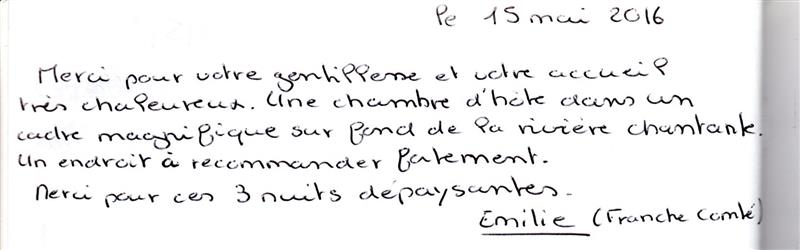 le 15 mai 2016
Merci pour votre gentillesse et votre accueil
très chaleureux. Une chambre d'hôte dans un
cadre magnifique sur fond de la rivière chantante.
Un endroit à recommander fortement.
Merci pour ces 3 nuits dépaysantes.
Emilie (Franche Comté)